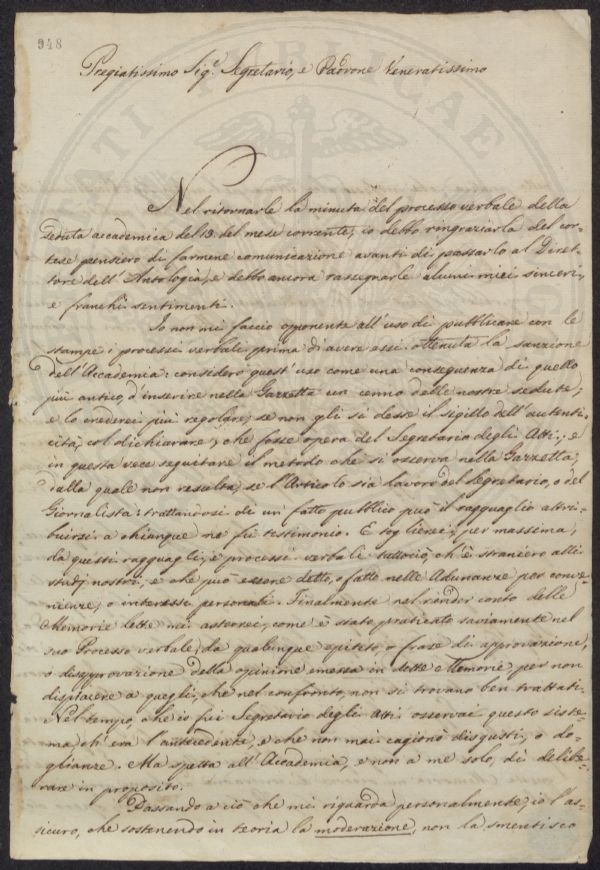 948
Pregiatissimo Sig.r Segretario, e Padrone Veneratissimo
Nel ritornarle la minuta del processo verbale della
seduta accademica del 13. del mese corrente, io debbo ringraziarla del cor-
tese pensiero di farmene comunicazione avanti di passarlo al Diret-
tore dell'Antologia, e debbo ancora rassegnarle alcuni miei sinceri,
e franchi sentimenti.
Io non mi faccio oponente all'uso di pubblicare con le
stampe i processi verbali prima d'avere essi ottenuta la sanzione
dell'Accademia: considero quest'uso come una conseguenza di quello
più antico d'inserire nella Gazzetta un cenno delle nostre sedute;
e lo crederei più regolare, se non gli si desse il sigillo dell'autenti-
cità, col dichiarare, che fosse opera del Segretario degli Atti, e
in questa vece seguitare il metodo che si osserva nella Gazzetta,
dalla quale non resulta, se l'Articolo sia lavoro del Segretario, o del
Giornalista: trattandosi di un fatto pubblico può il ragguaglio attri-
buirsi a chiunque ne fù testimonio. E toglierei, per massima,
da questi ragguagli, e processi verbali tuttociò, ch'è straniero alli
studj nostri, e che può essere detto, o fatto nelle Adunanze per conve-
nienze, o interessi personali. Finalmente nel render conto delle
Memorie dette mi asterrei, come è stato praticato saviamente nel
suo Processo verbale, da qualunque epiteto, o frase di approvazione,
o disapprovazione della opinione emessa in dette Memorie per non
dispiacere a quegli, che nel confronto, non si trovano ben trattati.
Nel tempo, che io fui Segretario degli Atti osservai questo siste-
ma, ch'era l'antecedente, e che non mai cagionò disgusti, o do-
glianze. Ma spetta all'Accademia, e non a me solo, di delibe-
rare in proposito.
Passando a ciò che mi riguarda personalmente, io l'as-
sicuro, che sostenendo in teoria la moderazione, non la smentisco